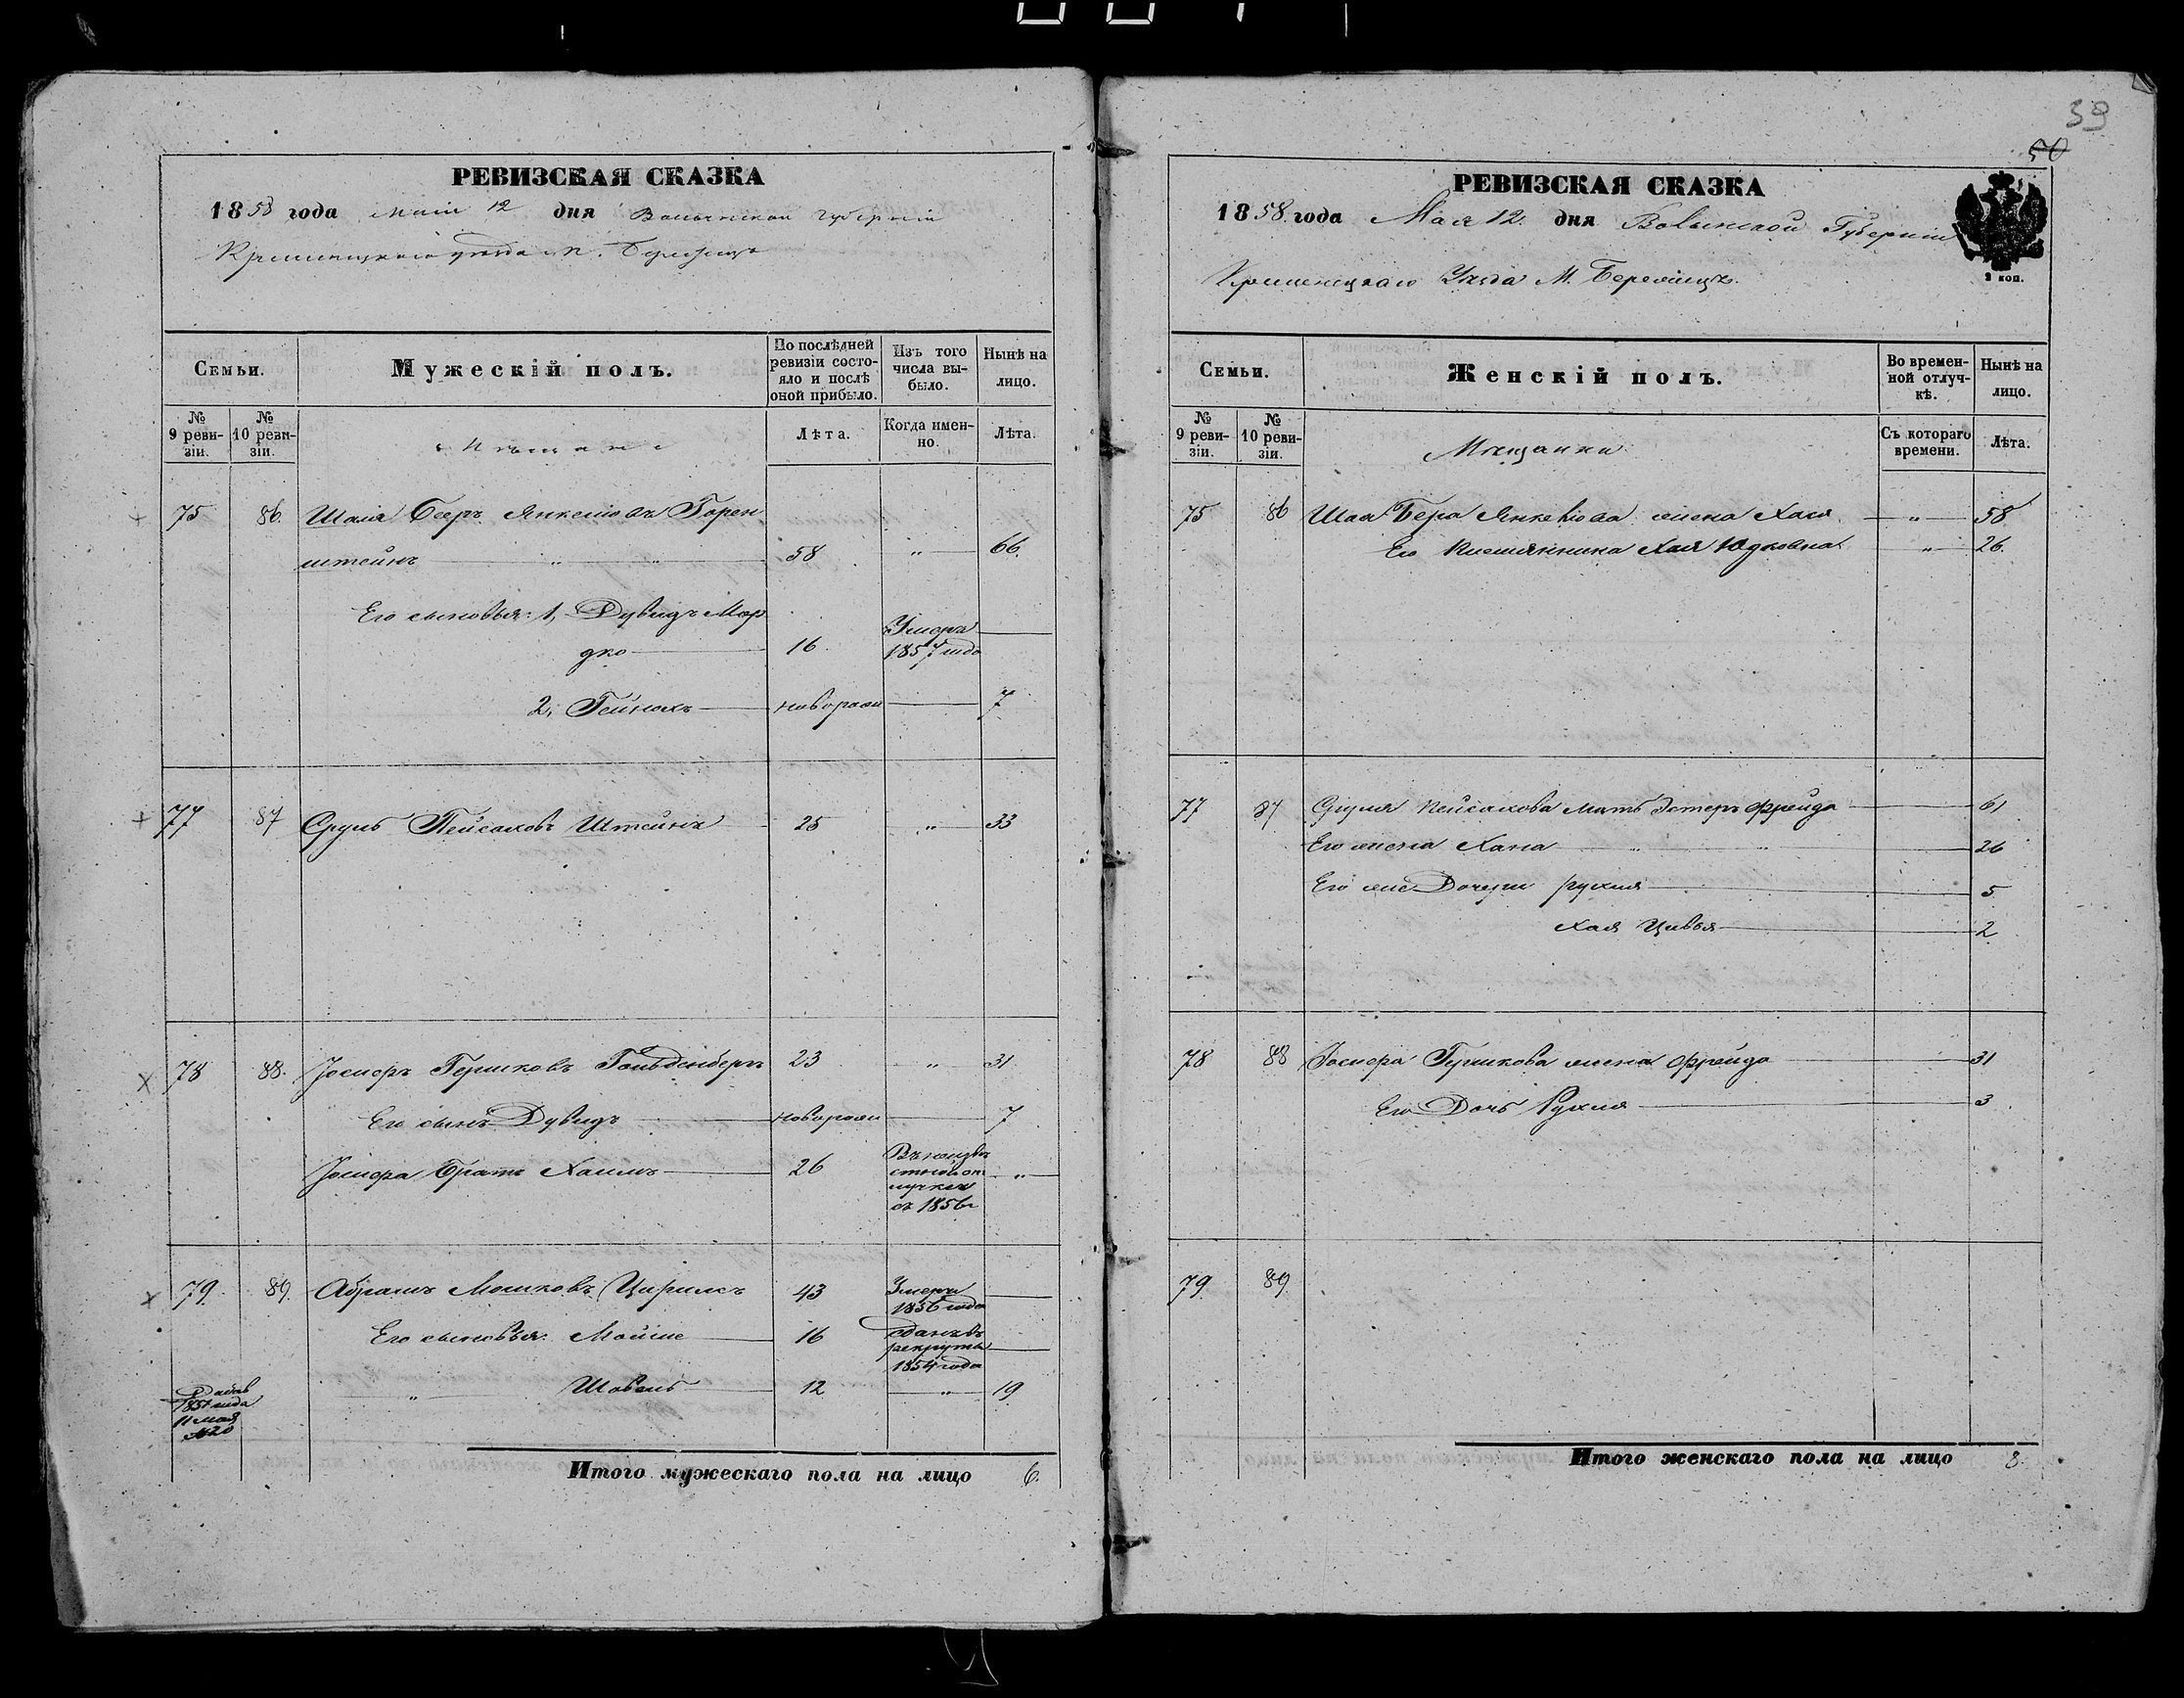 39
50
РЕВИЗСКАЯ СКАЗКА
1858 года маія 12 дня Волынской губерніи
Кременецкаго уезда м.
Семьи.
Мужескій полъ.
По послѣдней ревизіи состояло и послѣ оной прибыло.
Изъ того числа выбыло.
Нынѣ на лицо.
№ 9 ревизіи.
№ 10 ревизіи.
Мѣщане
Лѣта.
Когда именно.
Лѣта.
75 86. Шаля Беер Янкелiовъ Горен
штейнъ 58 " 66.
Его сыновья: 1, Дувидъ Мор
дко 16. Умеръ 1857 года
2, Гейнахъ новорож 7
77 87 Сруль Пейсаховъ Штейнъ 25 " 33
78 88. Іосифъ Гершковъ Гольденберъ 23 " 31
Его сынъ Дувидъ новорож 7
Іосифа Братъ Хаимъ 26 съ 1856г "
79. 89. Абрамъ Мошковъ Цирилсъ 43 Умеръ 1856 года
Его сыновья: Мойше 16 сданъ въ рекруты 1854 года
" Шовель 12 " 19
1851 года
11 мая
№20
Итого мужескаго пола на лицо 6.
РЕВИЗСКАЯ СКАЗКА
1858. года Мая 12. дня Волынской Губерніи
2 коп.
Кременецкаго Уезда М. Бережецъ.
Семьи.
Женскій полъ.
Во временной отлучкѣ.
Нынѣ на лицо.
№ 9 ревизіи.
№ 10 ревизіи.
Мѣщанки
Съ котораго времени.
Лѣта.
75 86 Шая Бера Янкеліова жена Хася " 58
Его племянница Хая Юдковна " 26.
77 87 Сруля Пейсахова мать Эстеръ Фрейда 61
Его жена Хана " " 26
Его же Дочери Рухля 5
Хая Цивья 2
78 88 Іосифа Гершкова жена Фрейда 31
Его Дочь Рухля 3
79. 89.
Итого женскаго пола на лицо 8.